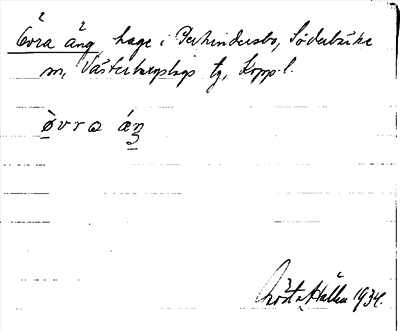 Övra äng, hage i Gerhindersbo, Söderbärke
sn, Västerbergslags tg, Kopp. l.
øvra áŋ
Gösta Hallen 1934.